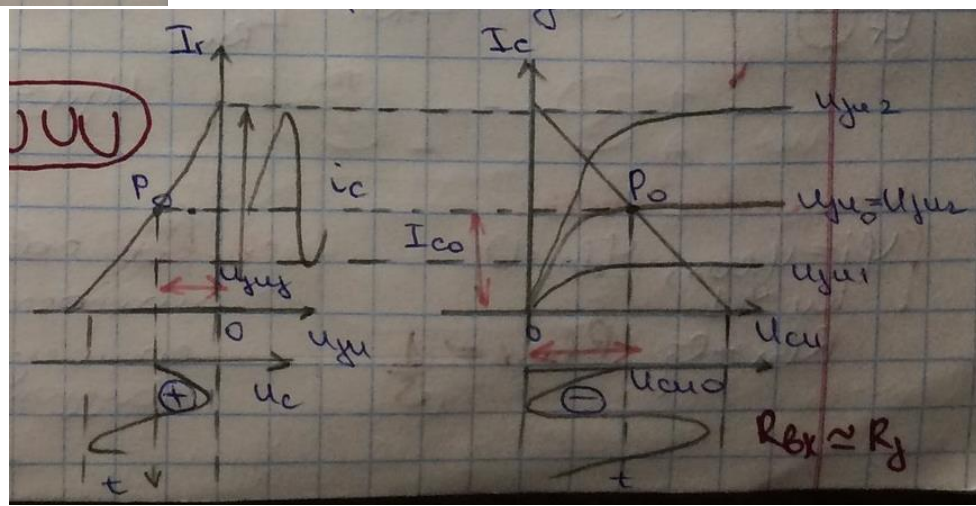 Ic
Ic
Uзи2
P₀
ic
P₀
Uзи₀=Uзи₂
Ic₀
Uзиз
Uзи1
0
Uзи
0
Uси
+
Uс
−
Uси0
Rвх ≃ Rз
t
t